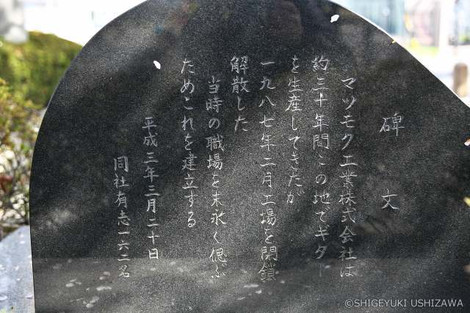 碑文
マツモク工業株式会社は
約三十年間この地でギター
を生産してきたが
一九八七年二月工場を閉鎖
解散した
当時の職場を末永く偲ぶ
ためこれを建立する
平成三年三月二十日
同社有志一六二名
©SHIGEYUKI USHIZAWA